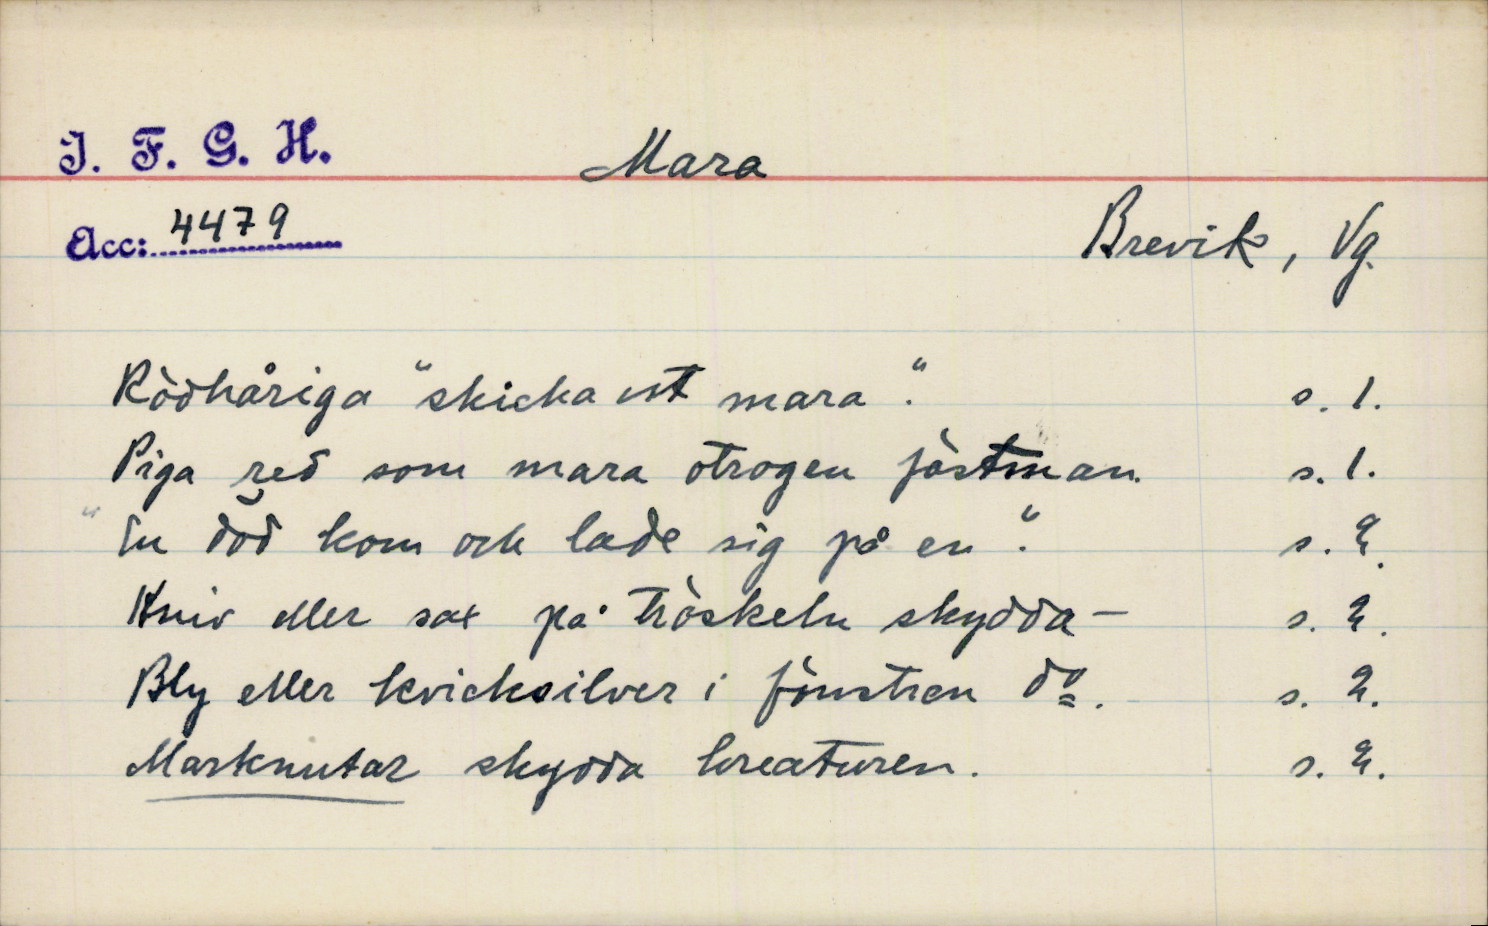 I. F. G. H.
Mara
Acc: 4479
Brevik, Vg.
Rödhåriga "skicka ut mara". s. 1.
Piga red som mara otrogen fästman. s. 1.
"En död kom och lade sig på en". s. 2.
Kniv eller sax på tröskeln skydda - s. 2.
Bly eller kvicksilver i fönstren do. s. 2.
Marknutar skydda kreaturen. s. 2.